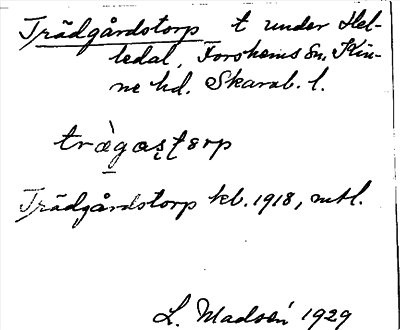 Trädgårdstorp t under Hel-
ledal, Forshems sn, Kin-
ne hd. Skarab. l.
trä̀gas̨ţorp
Trädgårdstorp kb. 1918, mtl.
L. Madsén 1929